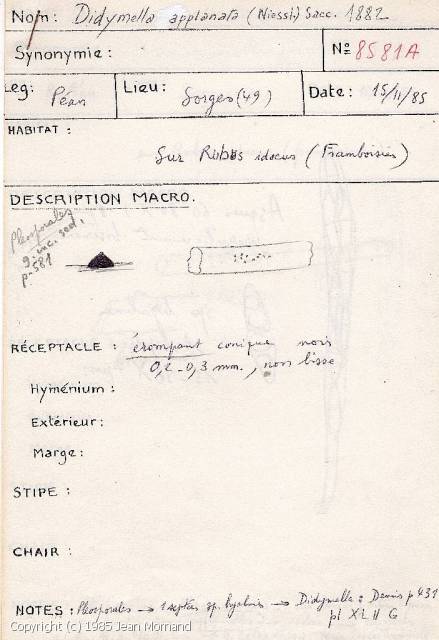 Nom: Didymella applanata (Niessl.) Sacc. 1882
Synonymie:
No 8581A
Leg: Péan
Lieu: Sorges (49)
Date: 15/11/85
HABITAT :
Sur Rubus idaeus (Framboisier)
DESCRIPTION MACRO.
Pleosporales
inc. sed.
p. 581
RÉCEPTACLE : érompant conique noir
0,2-0,3 mm., non lisse
Hyménium :
Extérieur :
Marge :
STIPE :
CHAIR :
NOTES : Pleosporales → 1 septées sp. hyalines → Didymella : Dennis p 431
pl XLII G
Copyright (c) 1985 Jean Mornand